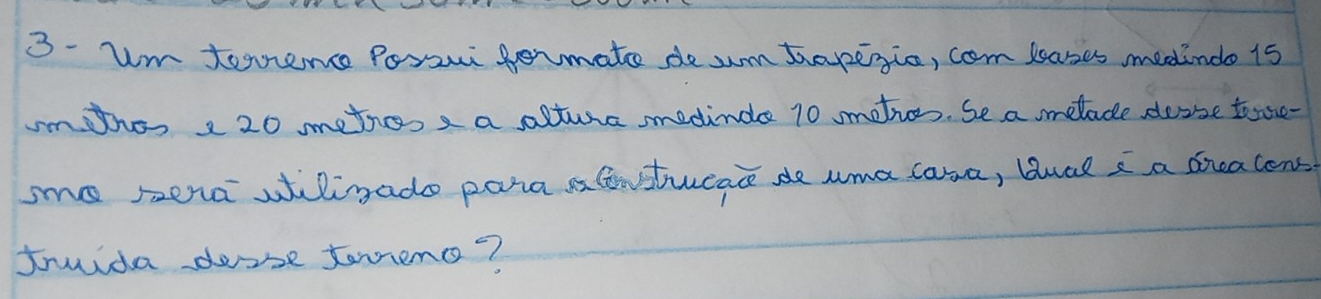 3- Um terreno Possui formato de um trapézio, com bases medindo 15
metros e 20 metros e a altura medindo 10 metros. Se a metade desse terre-
no será utilizado para a Construção de uma casa, Qual é a área cons-
truida desse terreno?